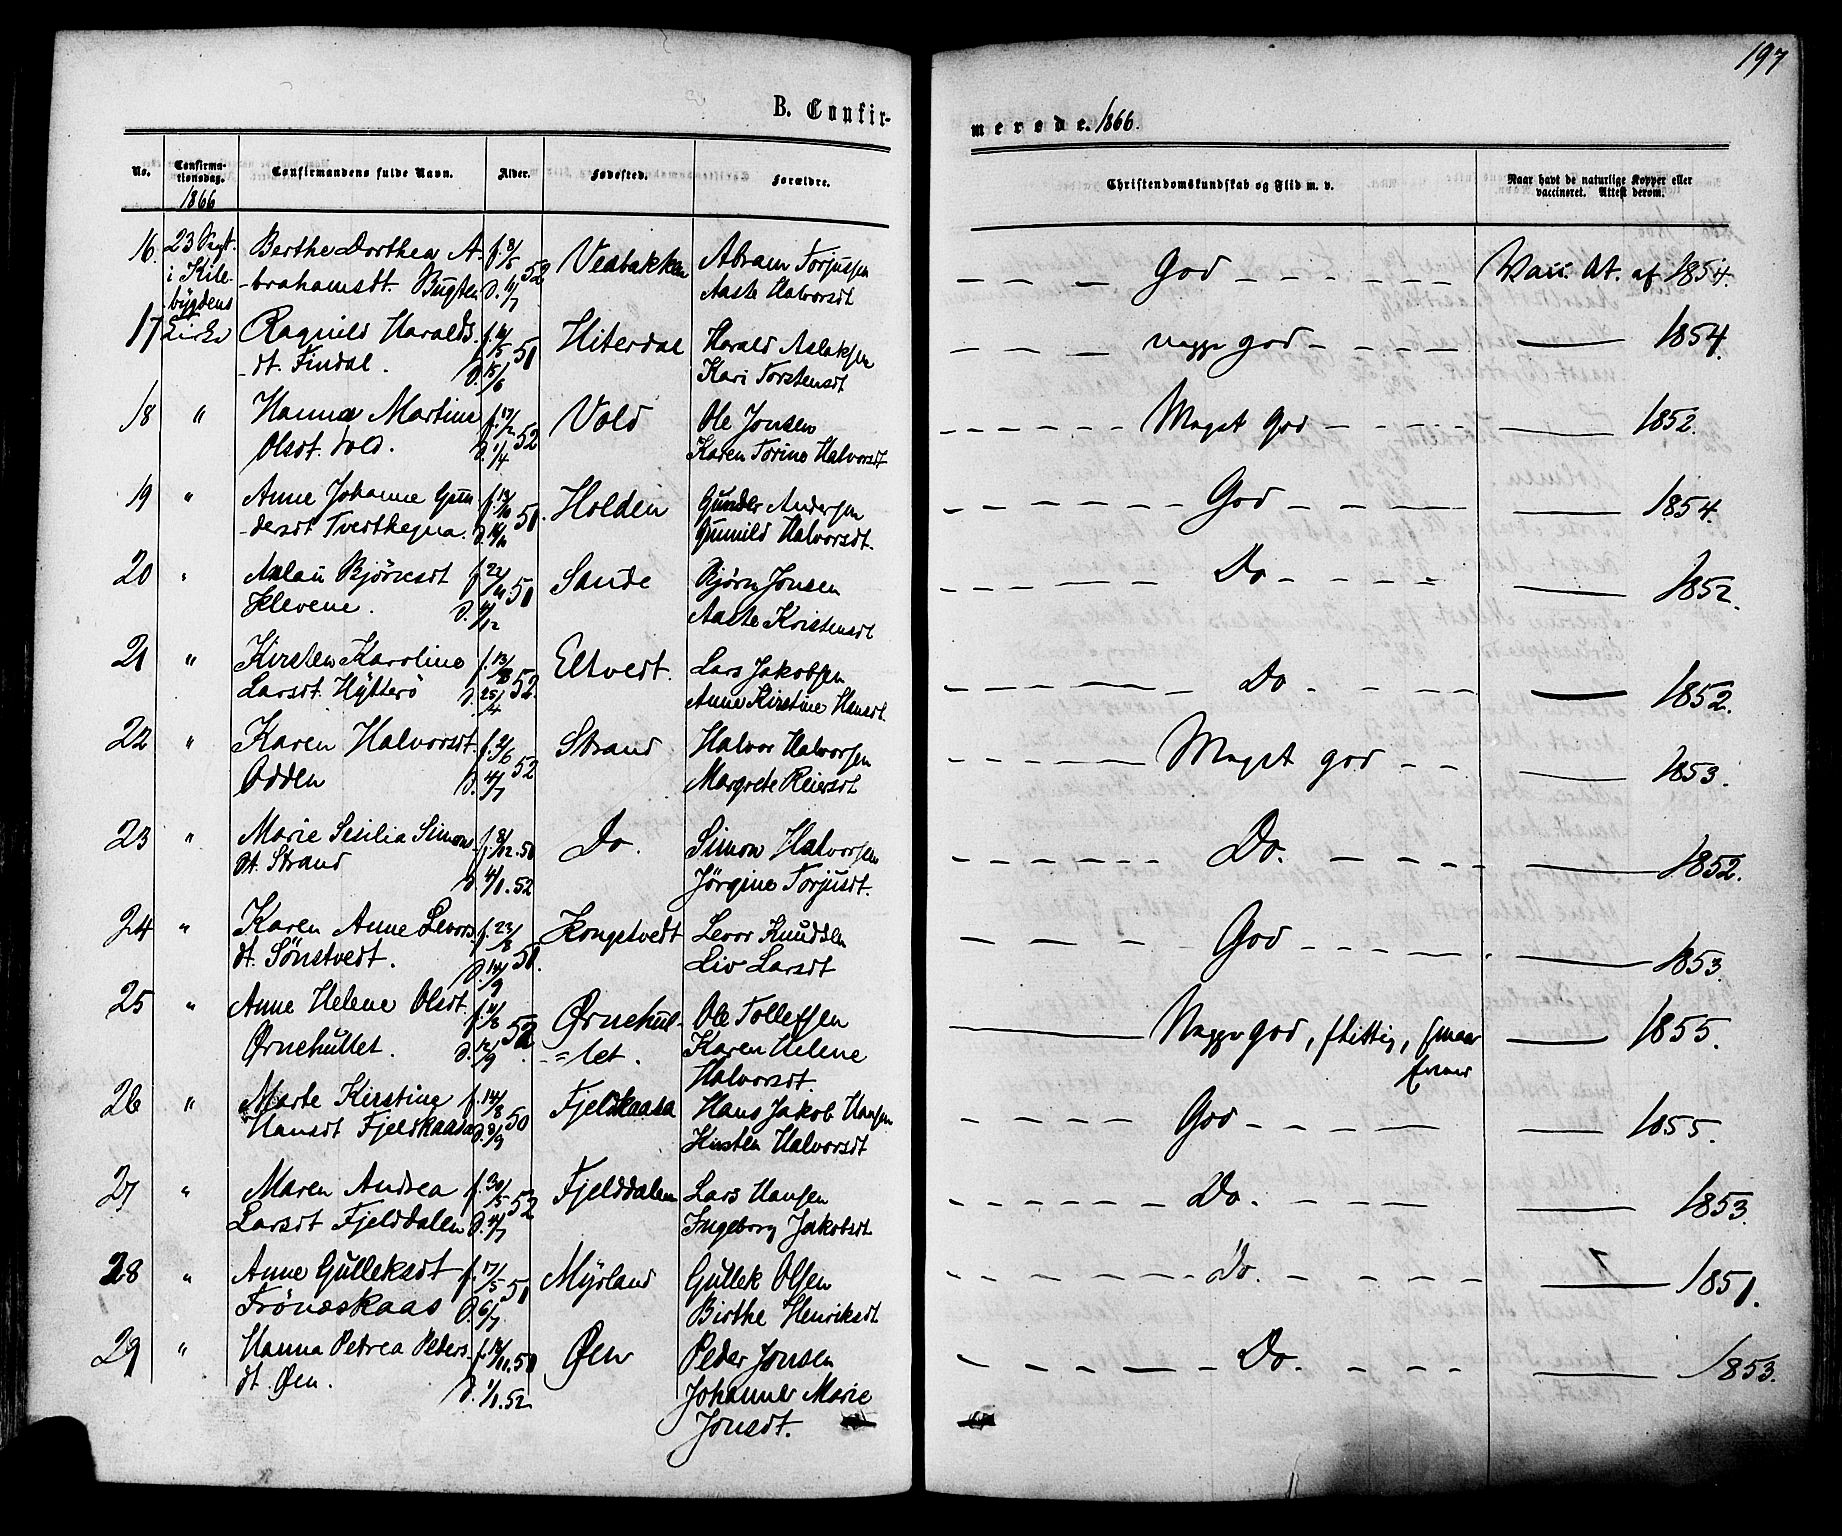 197
B. Confir-
merede. 1866.
No.
Confirma-
tionsdag.
Confirmandens fulde Navn.
Alder.
Fødested.
Forældre.
Christendomskundskab og Flid m. v.
Naar havt de naturlige Kopper eller
vaccineret. Attest derom.
1866
16. 23 Sept. Berthe Dorthea A- f. 8/5 52 Vedbakken Abram Torjussen God Vacc. At. af 1854.
i Kile- -brahamsdt. Bugten d. 4/7 Aaste Halvorsdt
-bygdens
17 Kirke Ragnild Haralds f. 11/5 51 Hiterdal Harald Aslaksen neppe god 1854.
-dt. Findal. d. 15/6 Kari Torstensdt
18 " Hanna Martine f. 17/2 52 Vold Ole Jonsen Meget God 1852.
Olsdt. Vold. d. 1/4 Karen Torine Halvorsdt
19 " Anne Johanne Gun f. 13/10 50. Holden Gunder Andersen God 1854.
-dersdt Tvedthegna. Gunild Halvorsdt.
20 " Aslau Bjørnsdt f. 22/10 51 Sande Bjørn Jonsen Do 1852.
Klevene. d. /12 Aaste Kristensdt
21 " Kirsten Karoline f. 13/3 52. Eltvedt. Lars Jakobsen Do 1852.
Larsdt. Hytterö d. 25/4 Anne Kirstine Hansdt.
22 " Karen Halvorsdt. f. 2/6 52 Strand Halvor Halvorsen Meget god 1853.
Odden d. 4/7 Margrete Reiersdt
23 " Marie Sesilia Simons f. 8/12. 51 Do. Simon Halvorsen Do. 1852.
dt. Strand d. 4/1. 52 Jörgine Torjusdt.
24 " Karen Anne Levors f. 23/8 51. Kongstvedt Levor Knudsen God 1853.
dt. Sönstvedt. d. 14/9 Liv Larsdt
25 " Anne Helene Olsdt. f. 4/8 52. Ørnehul- Ole Tollefsen Neppe God, flittig, smaa 1855.
Ørnehullet. d. 12/9 -let. Karen Helene Evner
Halvorsdt.
26 " Marte Kirstine f. 14/8 50 Fjeldkaasa Hans Jakob Hansen God 1855.
Hansdt Fjeldkaasa d. 8/9 Kirsten Halvorsdt
27 " Maren Andrea f. 30/5 52 Fjelddalen Lars Hansen Do. 1853.
Larsdt Fjelddalen d. 4/7 Ingeborg Jakobsdt
28 " Anne Gulleksdt f. 17/5 51 Myrland Gullek Olsen Do. 1851.
Frönæskaas d. 6/7 Birthe Henriksdt
29 " Hanna Pedrea Peders f. 12/11. 51 Øen Peder Jonsen Do. 1853.
dt. Øen. d. 1/1. 52 Johanne Marie
Jonsdt.